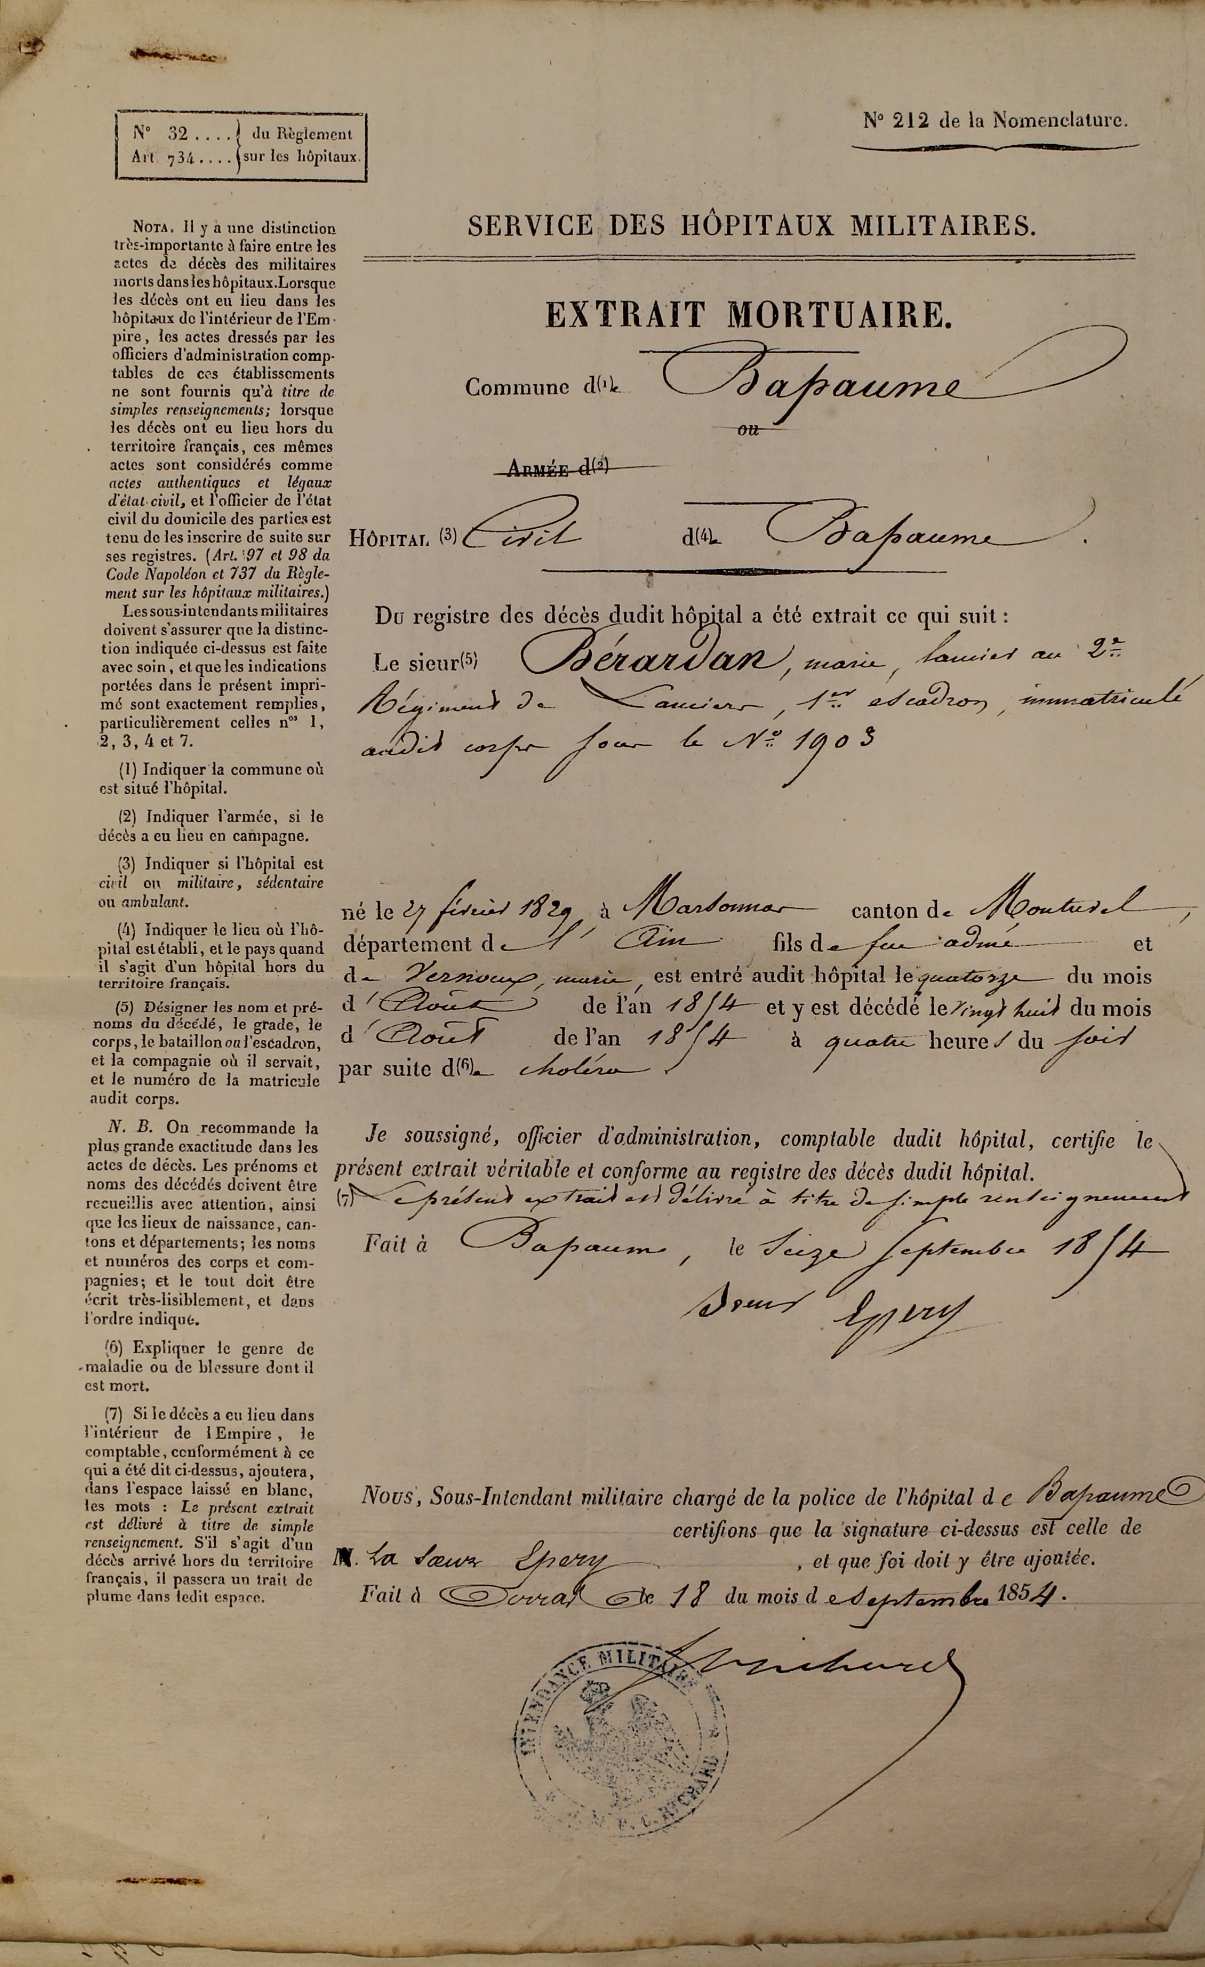 N° 32 .... du Règlement
Art. 734 .... sur les hôpitaux.
N° 212 de la Nomenclature.
SERVICE DES HÔPITAUX MILITAIRES.
EXTRAIT MORTUAIRE.
Commune d(1)e Bapaume
ou
ARMÉE d(2)
HÔPITAL (3) Civil d(4)e Bapaume .
Du registre des décès dudit hôpital a été extrait ce qui suit :
Le sieur(5) Bérardan, marie, lancier au 2e
Régiment de Lanciers, 1er escadron, immatriculé
audit corps sous le N° 1903
né le 27 février 1829, à Marsonnas canton de Montrevel,
département de l'Ain fils de feu admé et
de Vernoux, marie, est entré audit hôpital le quatorze du mois
d'Août de l'an 1854 et y est décédé le vingt huit du mois
d'Août de l'an 1854 à quatre heures du soir
par suite d(6)e choléra.
Je soussigné, officier d'administration, comptable dudit hôpital, certifie le
présent extrait véritable et conforme au registre des décès dudit hôpital.
(7) Le présent extrait est délivré à titre de simple renseignement
Fait à Bapaume, le Seize Septembre 1854
Sœur Epery
Nous, Sous-Intendant militaire chargé de la police de l'hôpital de Bapaume
certifions que la signature ci-dessus est celle de
M. La Sœur Epery , et que foi doit y être ajoutée.
Fait à Arras le 18 du mois de Septembre 1854.
INTENDANCE MILITAIRE
RICHARD
NOTA. Il y a une distinction
très-importante à faire entre les
actes de décès des militaires
morts dans les hôpitaux. Lorsque
les décès ont eu lieu dans les
hôpitaux de l'intérieur de l'Em-
pire, les actes dressés par les
officiers d'administration comp-
tables de ces établissements
ne sont fournis qu'à titre de
simples renseignements; lorsque
les décès ont eu lieu hors du
territoire français, ces mêmes
actes sont considérés comme
actes authentiques et légaux
d'état-civil, et l'officier de l'état
civil du domicile des parties est
tenu de les inscrire de suite sur
ses registres. (Art. 97 et 98 du
Code Napoléon et 737 du Règle-
ment sur les hôpitaux militaires.)
Les sous-intendants militaires
doivent s'assurer que la distinc-
tion indiquée ci-dessus est faite
avec soin, et que les indications
portées dans le présent impri-
mé sont exactement remplies,
particulièrement celles nos 1,
2, 3, 4 et 7.
(1) Indiquer la commune où
est situé l'hôpital.
(2) Indiquer l'armée, si le
décès a eu lieu en campagne.
(3) Indiquer si l'hôpital est
civil ou militaire, sédentaire
ou ambulant.
(4) Indiquer le lieu où l'hô-
pital est établi, et le pays quand
il s'agit d'un hôpital hors du
territoire français.
(5) Désigner les nom et pré-
noms du décédé, le grade, le
corps, le bataillon ou l'escadron,
et la compagnie où il servait,
et le numéro de la matricule
audit corps.
N. B. On recommande la
plus grande exactitude dans les
actes de décès. Les prénoms et
noms des décédés doivent être
recueillis avec attention, ainsi
que les lieux de naissance, can-
tons et départements; les noms
et numéros des corps et com-
pagnies; et le tout doit être
écrit très-lisiblement, et dans
l'ordre indiqué.
(6) Expliquer le genre de
maladie ou de blessure dont il
est mort.
(7) Si le décès a eu lieu dans
l'intérieur de l'Empire, le
comptable, conformément à ce
qui a été dit ci-dessus, ajoutera,
dans l'espace laissé en blanc,
les mots : Le présent extrait
est délivré à titre de simple
renseignement. S'il s'agit d'un
décès arrivé hors du territoire
français, il passera un trait de
plume dans ledit espace.